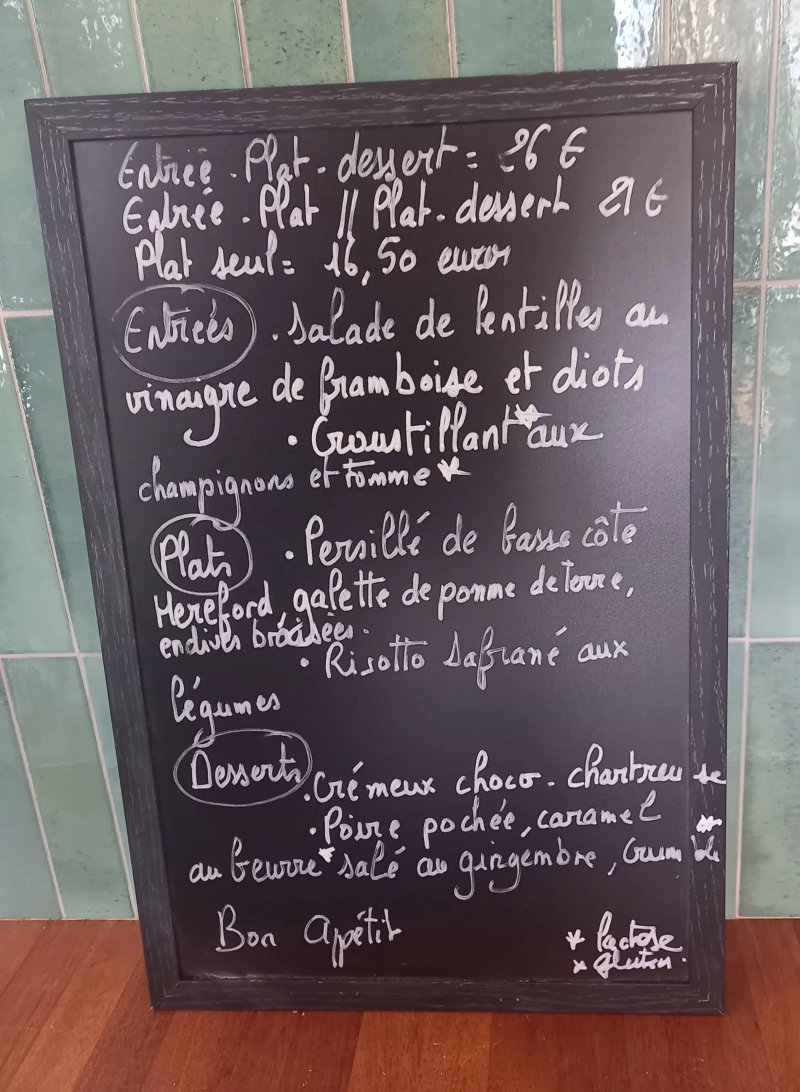 Entrée . Plat . dessert = 26 €
Entrée . Plat || Plat . dessert 21 €
Plat seul = 16,50 euros
Entrées . Salade de lentilles au
vinaigre de framboise et diots
• Croustillant* aux
champignons et tomme *
Plats • Persillé de basse côte
Hereford, galette de pomme de terre,
endives braisées.
• Risotto safrané aux
légumes
Desserts . Crémeux choco - chartreuse
• Poire pochée, caramel
au beurre* salé au gingembre, crumble *
Bon Appétit
* lactose
* gluten.